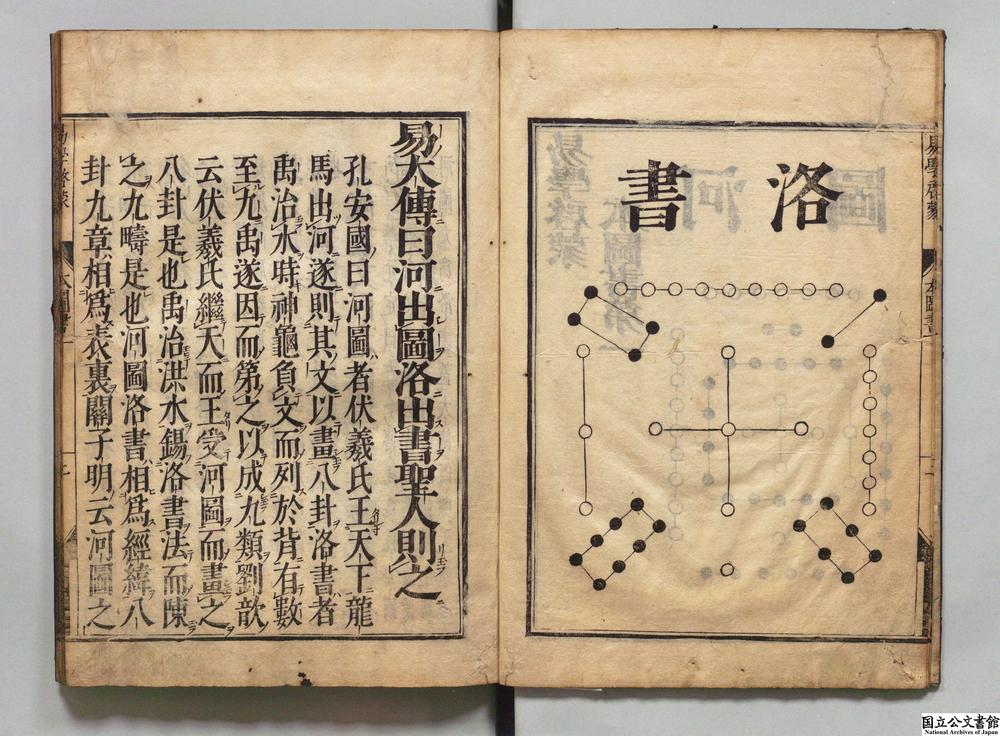 洛書
易學啓蒙
本圖書
易大傳曰河出圖洛出書聖人則之
孔安國曰河圖者伏羲氏王天下龍
馬出河遂則其文以畫八卦洛書者
禹治水時神龜負文而列於背有數
至九禹遂因而第之以成九類劉歆
云伏羲氏繼天而王受河圖而畫之
八卦是也禹治洪水錫洛書法而陳
之九疇是也河圖洛書相爲經緯八
卦九章相爲表裏關子明云河圖之
国立公文書館
National Archives of Japan